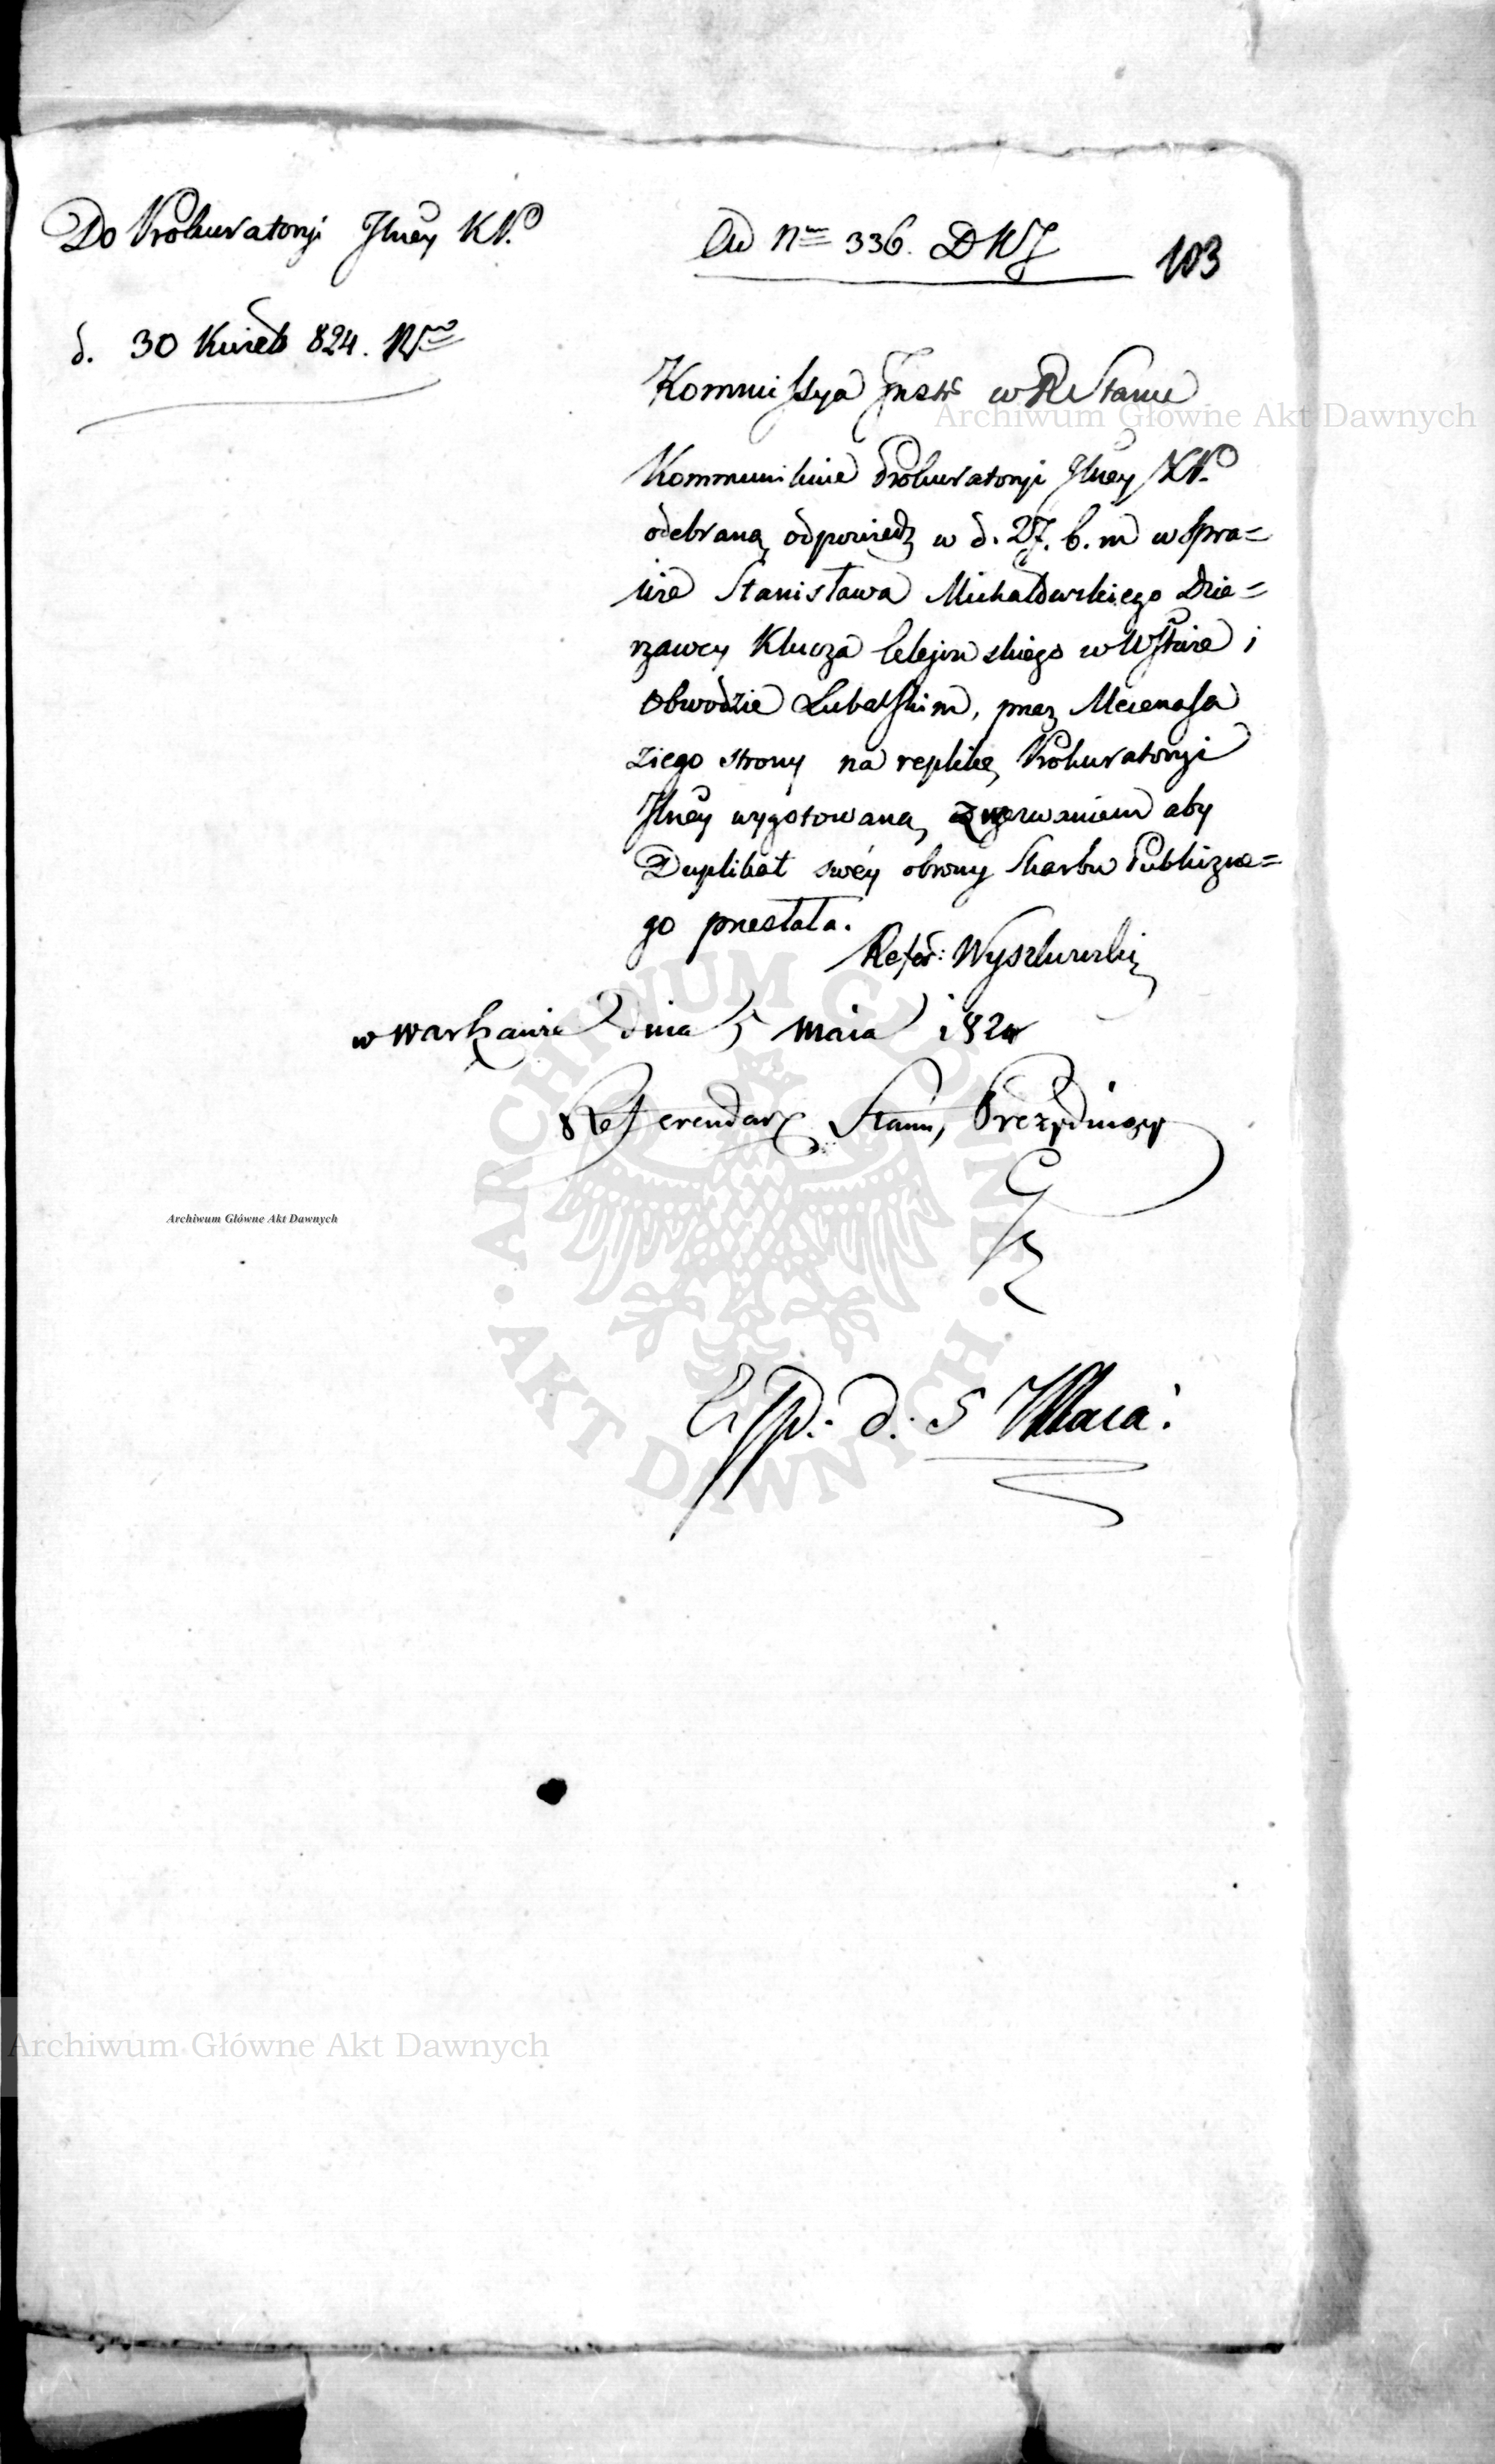 Do Prokuratoryi Jlney KP.
d. 30 Kwiet 824. Nro
Ad Nm 336. DKJ
103
Kommissya Jnstr w R Stanu
Kommunikuie Prokuratoryi Jlney KP.
odebraną odpowiedz w d. 27. b. m w spra=
wie Stanisława Michałowskiego Dzie=
rzawcy Klucza Celejowskiego w Wstwie i
Obwodzie Lubelskim, przez Mecenasa
ziego strony na replikę Prokuratoryi
Jlney wygotowaną, z wezwaniem aby
Duplikat swéy obrony Skarbu Publiczne=
go przesłała.
Refer: Wyszkowski
w Warszawie dnia 5 Maia 1824
Referendarz Stanu, Prezyduiący
Exp. d. 5 Maia.
Archiwum Główne Akt Dawnych
Archiwum Główne Akt Dawnych
ARCHIWUM GŁÓWNE AKT DAWNYCH
Archiwum Główne Akt Dawnych